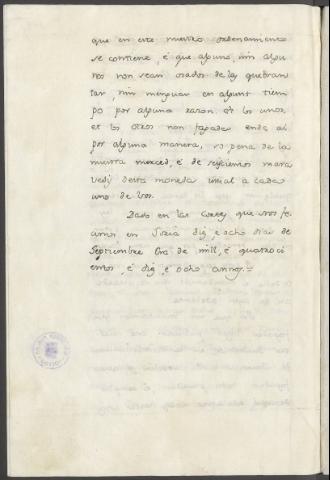 que en este nuestro ordenamiento
se contiene, é que alguno, nin algu
nos non sean osados de lo quebran
tar, nin menguar en algunt tiem
po por alguna razon et los unos
et los otros non fagades ende al
por alguna manera, so pena de la
nuestra merced, é de seyscientos mara
vedis desta moneda usual a cada
uno de vos.
Dado en las Cortes que nos fe
cimos en Soria diez e ocho dias de
Septiembre Era de mill, é quatroci
entos, é diez, é ocho annos.=